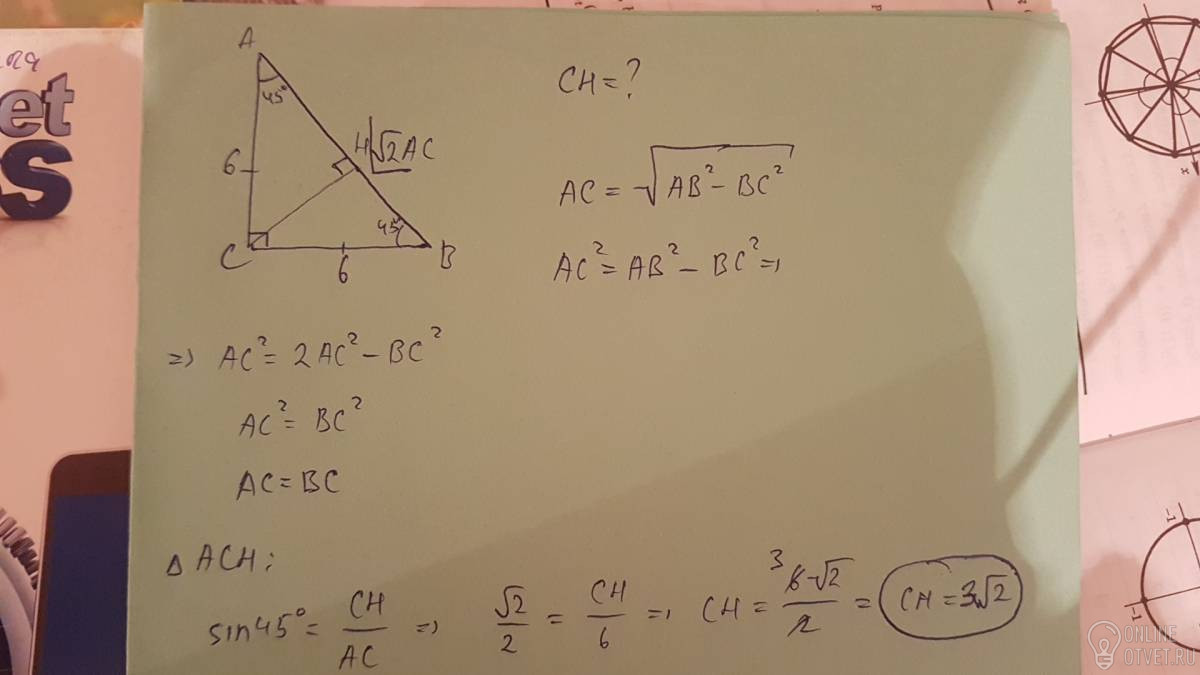 A
45°
CH = ?
6
H √2AC
AC = √AB² - BC²
45°
C
6
B
AC² = AB² - BC² =>
=> AC² = 2AC² - BC²
AC² = BC²
AC = BC
Δ ACH:
sin45° = CH/AC => √2/2 = CH/6 => CH = 6·√2/2 = CH = 3√2
3
et
S
ONLINE
OTVET.RU